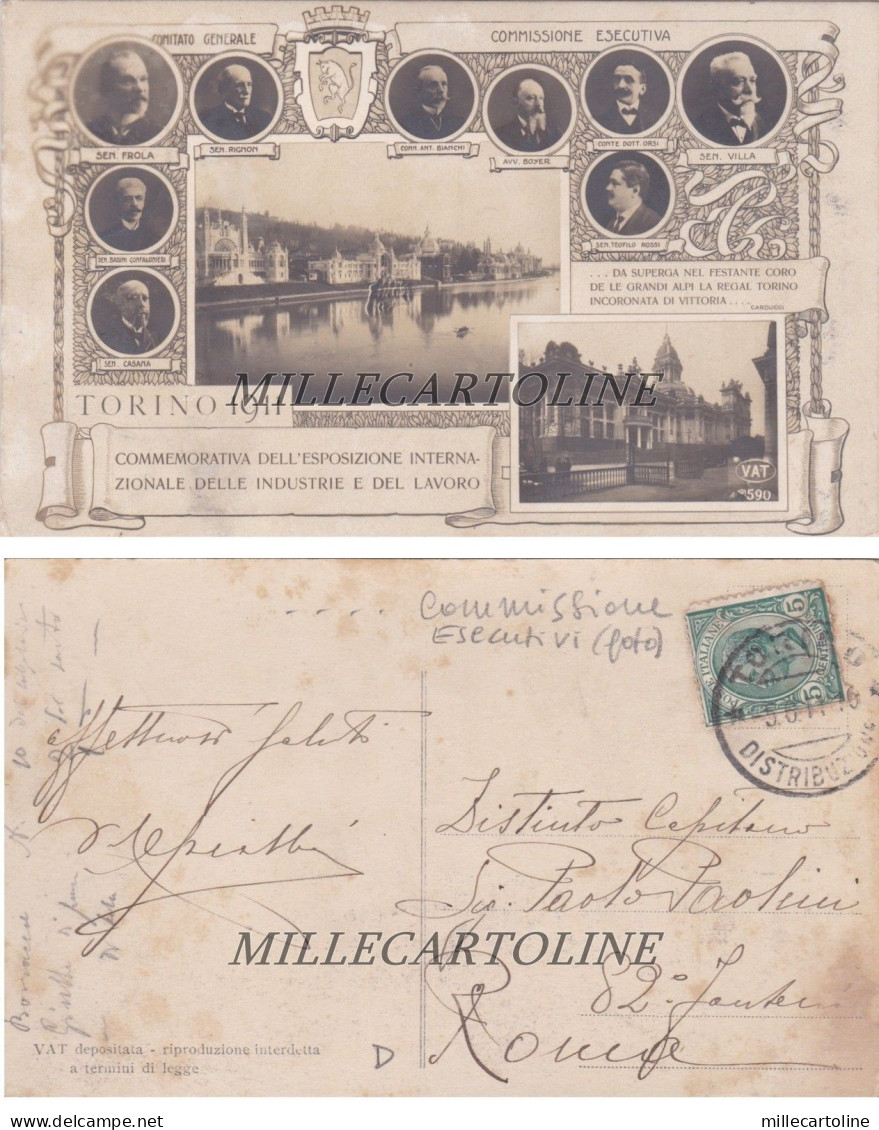 COMITATO GENERALE
COMMISSIONE ESECUTIVA
SEN. FROLA
SEN. RIGNON
COMM. ANT. BIANCHI
AVV. BOYER
CONTE DOTT. ORSI
SEN. VILLA
SEN. BASINI CONFALONIERI
SEN. TEOFILO ROSSI
SEN. CASANA
. . . DA SUPERGA NEL FESTANTE CORO
DE LE GRANDI ALPI LA REGAL TORINO
INCORONATA DI VITTORIA . . . .
CARDUCCI
TORINO 1911
MILLECARTOLINE
COMMEMORATIVA DELL'ESPOSIZIONE INTERNA-
ZIONALE DELLE INDUSTRIE E DEL LAVORO
VAT
590
..... Commissione
Esecutivi (foto)
POSTE ITALIANE
5 5
DISTRIBUZIONE
Affettuosi Saluti
Distinto Capitano
Sig. Paolo Paolini
MILLECARTOLINE
82º Fanteria
Roma
VAT depositata - riproduzione interdetta
a termini di legge
D
delcampe.net
millecartoline